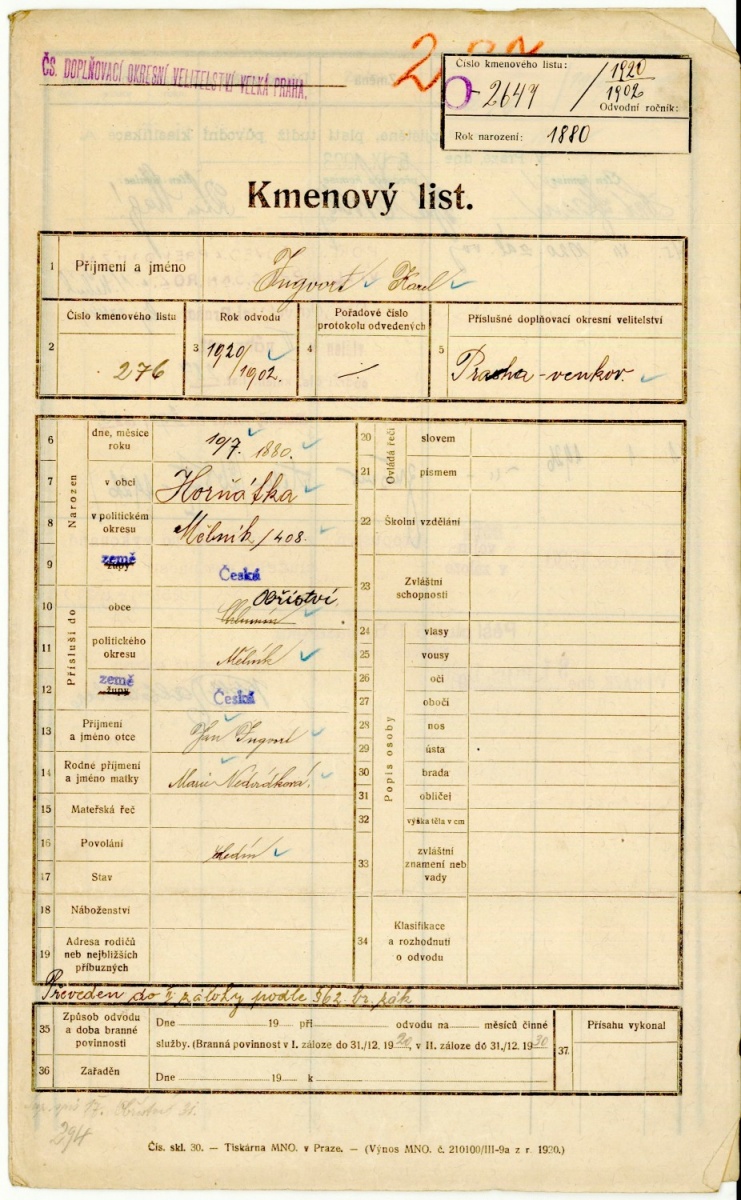 ČS. DOPLŇOVACÍ OKRESNÍ VELITELSTVÍ VELKÁ PRAHA.
Číslo kmenového listu:
2649 / 1920
1902
Odvodní ročník:
Rok narození: 1880
Kmenový list.
1 Příjmení a jméno Ingvort Karel
2 Číslo kmenového listu 276
3 Rok odvodu 1920/1902.
4 Pořadové číslo protokolu odvedených —
5 Příslušné doplňovací okresní velitelství Praha-venkov.
Narozen
6 dne, měsíce roku 19/7. 1880.
7 v obci Horňátka
8 v politickém okresu Mělník/408.
9 župy země Česká
Přísluší do
10 obce Obříství
11 politického okresu Mělník
12 župy země Česká
13 Příjmení a jméno otce Jan Ingvort
14 Rodné příjmení a jméno matky Marie
15 Mateřská řeč
16 Povolání
17 Stav
18 Náboženství
19 Adresa rodičů neb nejbližších příbuzných
Ovládá řeči
20 slovem
21 písmem
22 Školní vzdělání
23 Zvláštní schopnosti
Popis osoby
24 vlasy
25 vousy
26 oči
27 obočí
28 nos
29 ústa
30 brada
31 obličej
32 výška těla v cm
33 zvláštní znamení neb vady
34 Klasifikace a rozhodnutí o odvodu
Převeden do II zálohy podle §62. br. zák
35 Způsob odvodu a doba branné povinnosti
Dne 19 při odvodu na měsíců činné
služby. (Branná povinnost v I. záloze do 31./12. 1920, v II. záloze do 31./12. 1930
36 Zařaděn
Dne 19 k
37. Přísahu vykonal
294
Čís. skl. 30. — Tiskárna MNO. v Praze. — (Výnos MNO. č. 210100/III-9a z r. 1920.)